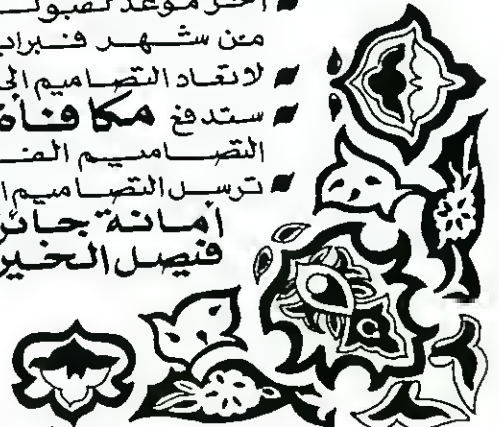 آخر موعد لقبول
من شهر فبراير
لا تعاد التصاميم إلى
ستدفع مكافأة
التصاميم الفـ
ترسل التصاميم ا
أمانة جائز
فيصل الخير